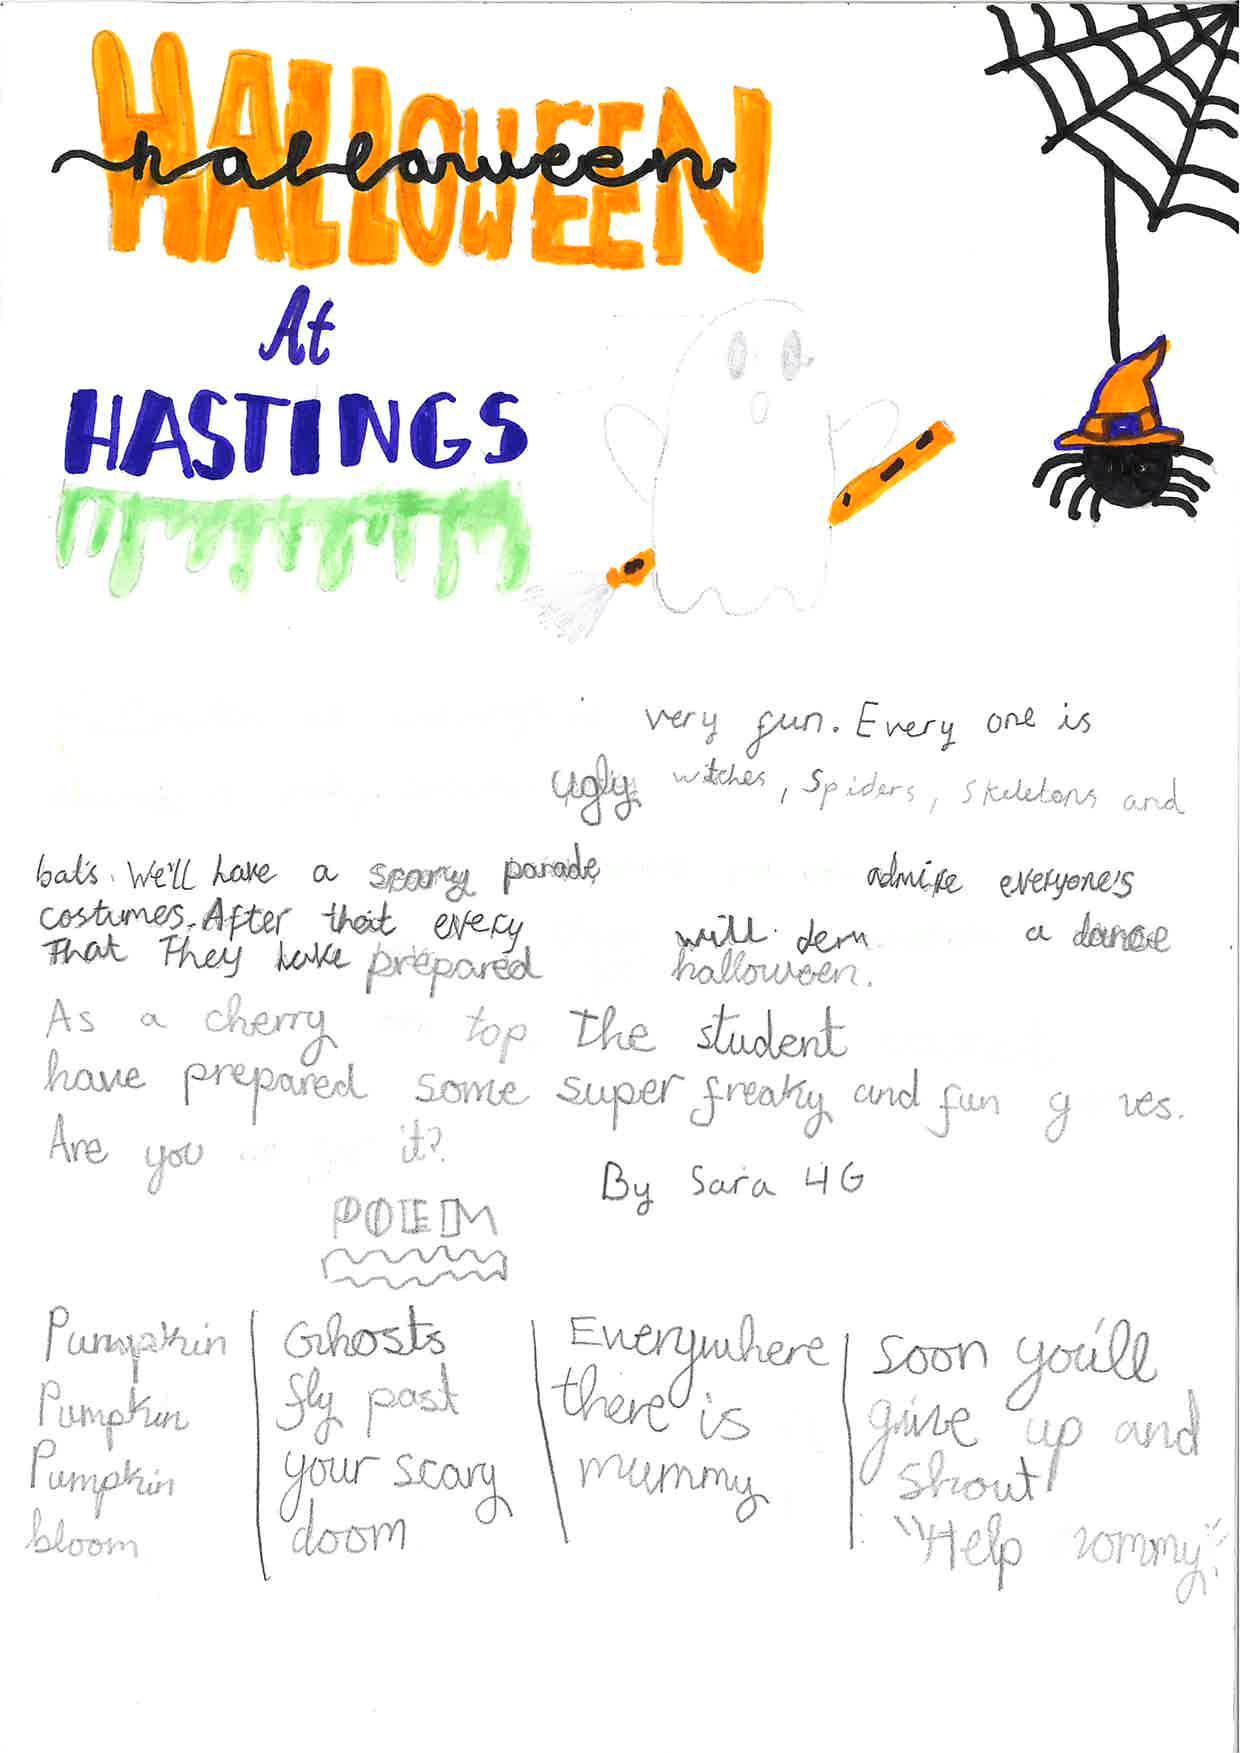 HALLOWEEN
halloween
At
HASTINGS
very fun. Every one is
Ugly witches, Spiders, Skeletons and
bats. We'll have a scary parade admire everyone's
costumes. After that every will dem a dance
That They have prepared halloween.
As a cherry top The student
have prepared some super freaky and fun g ves.
Are you it?
By Sara 4G
POEM
Pumpkin
Pumpkin
Pumpkin
bloom
Ghosts
fly past
your scary
doom
Everywhere
there is
mummy
Soon you'll
give up and
shout
"Help